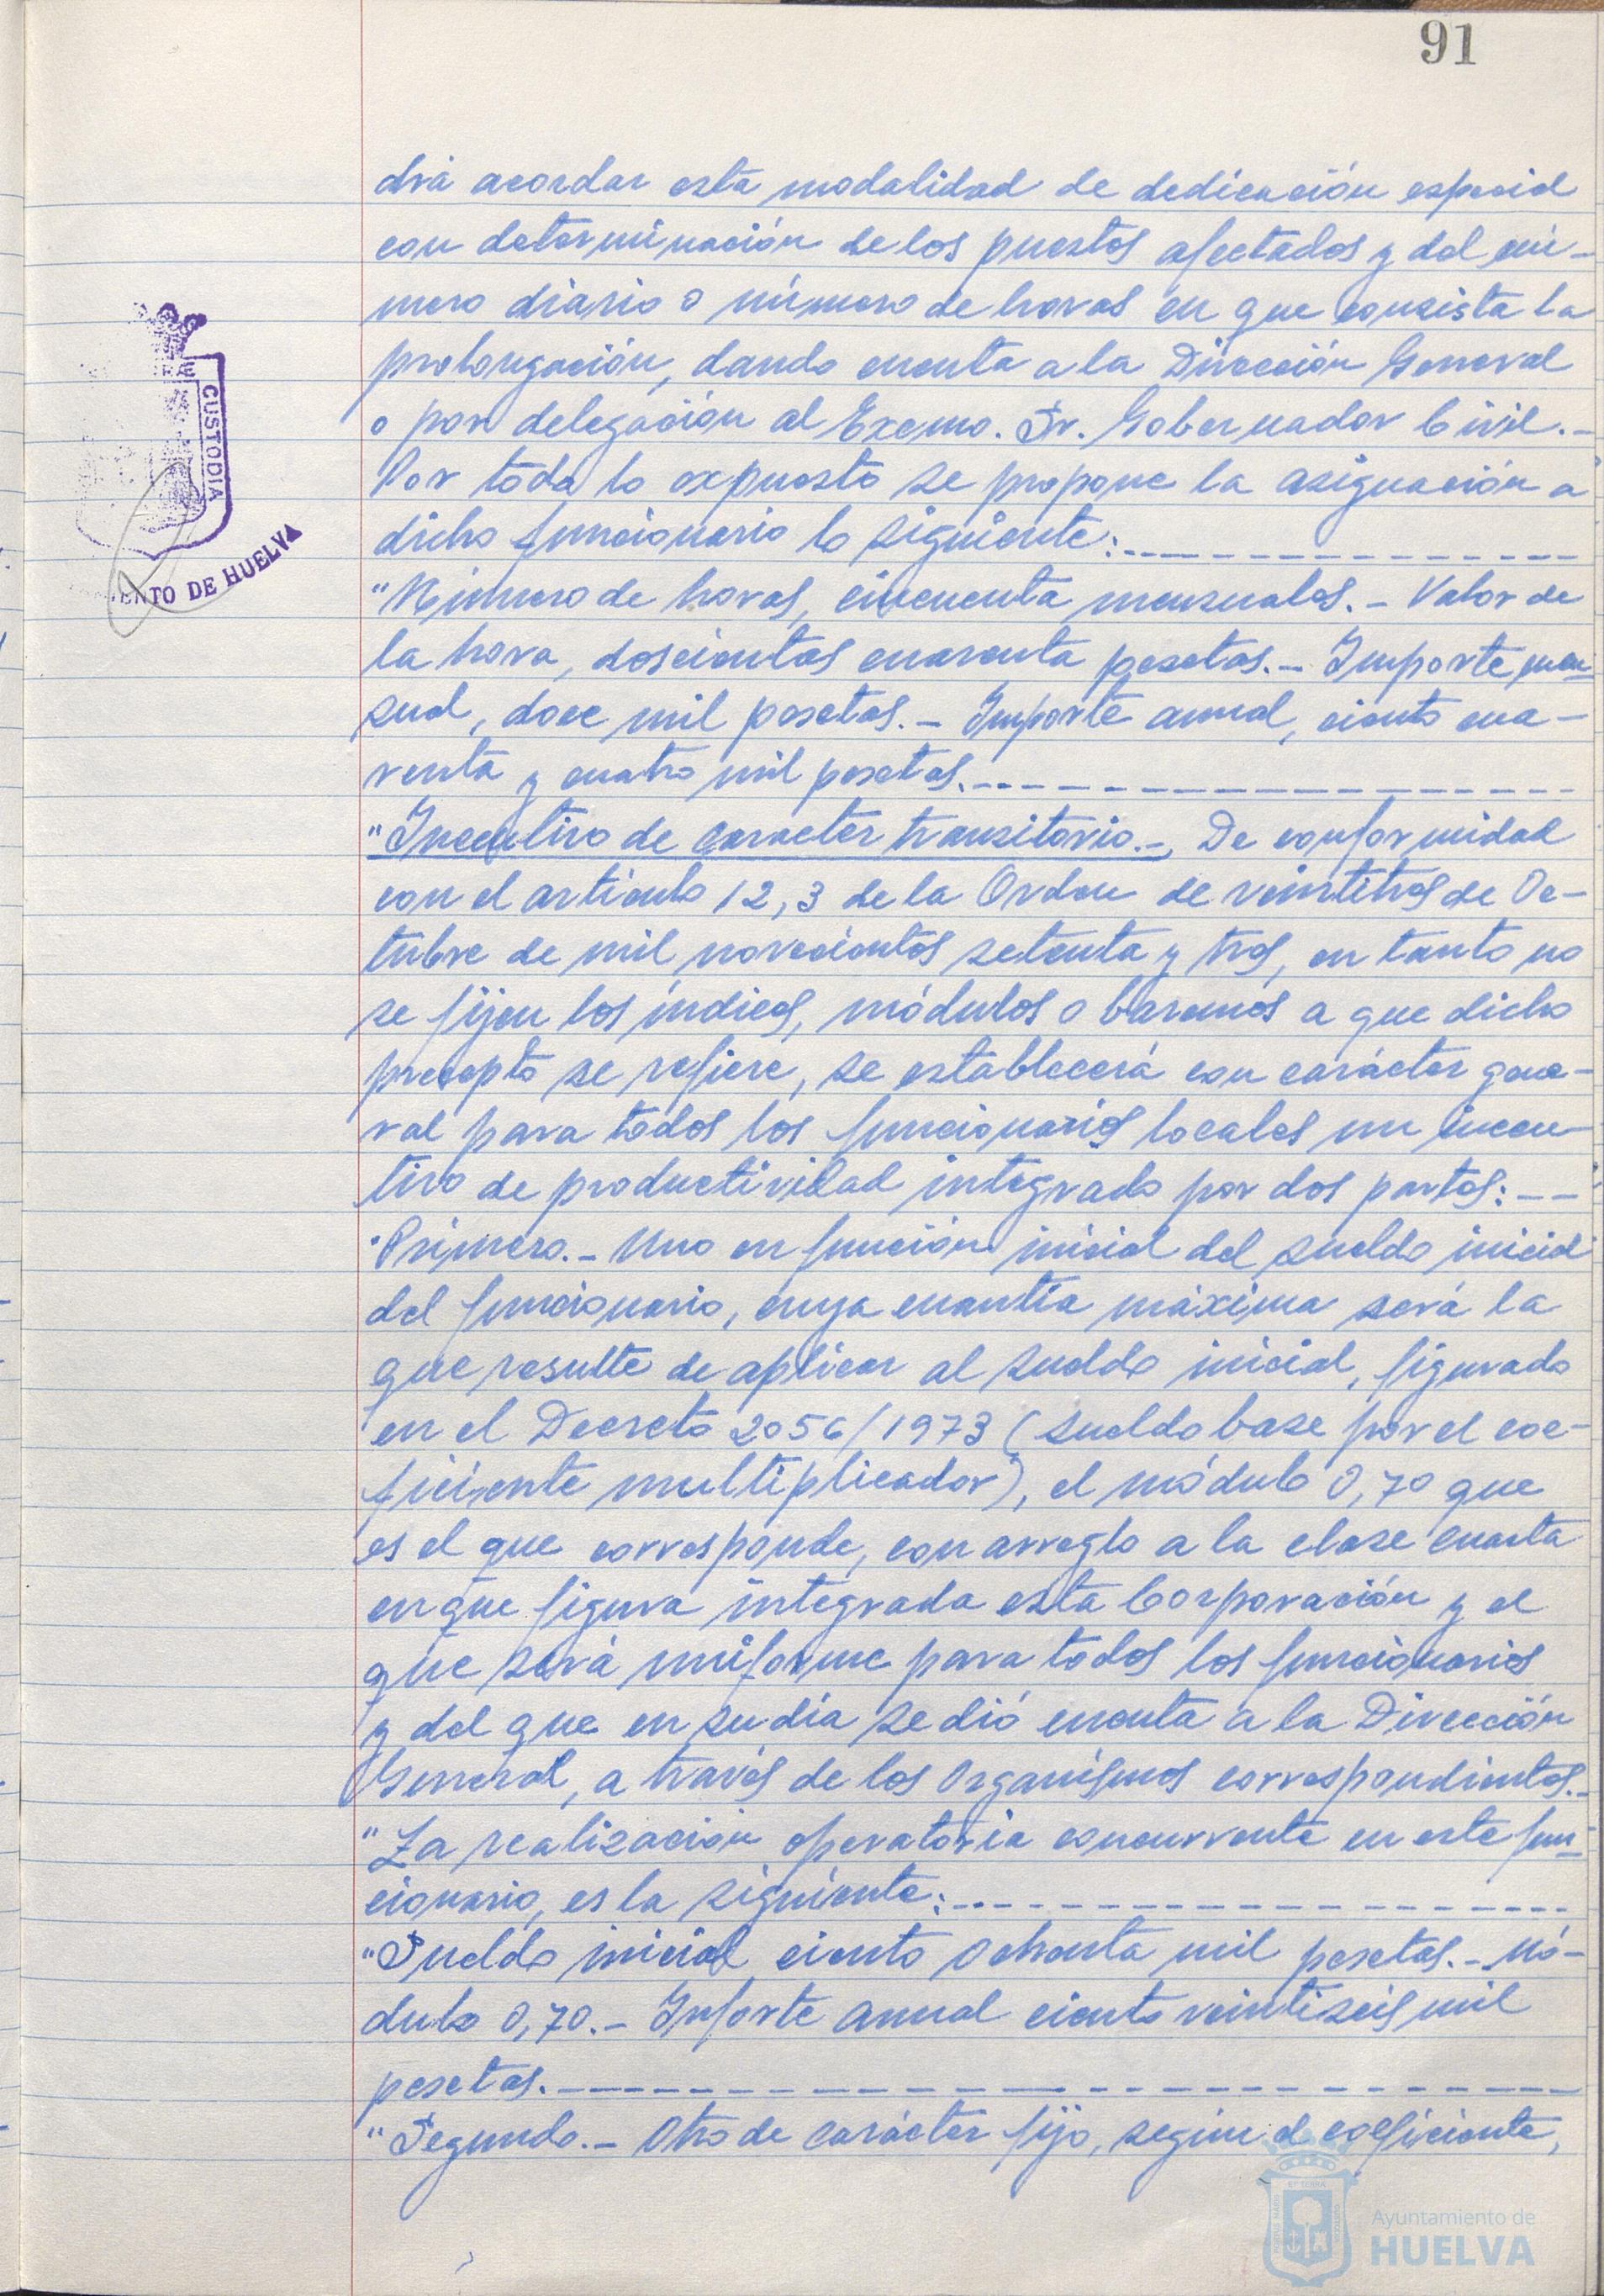 91
drá acordar esta modalidad de dedicación especial
con determinación de los puestos afectados y del nú-
mero diario o número de horas en que consista la
prolongación, dando cuenta a la Dirección General
o por delegación al Excmo. Sr. Gobernador Civil.-
Por todo lo expuesto se propone la asignación a
dicho funcionario lo siguiente:
"Número de horas, cincuenta mensuales.- Valor de
la hora, doscientas cuarenta pesetas.- Importe men-
sual, doce mil pesetas.- Importe anual, ciento cua-
renta y cuatro mil pesetas.
"Incentivo de caracter transitorio.- De conformidad
con el artículo 12,3 de la Orden de veintitres de Oc-
tubre de mil novecientos setenta y tres, en tanto no
se fijen los índices, módulos o baremos a que dicho
precepto se refiere, se establecerá con carácter gene-
ral para todos los funcionarios locales un incen-
tivo de productividad integrado por dos partes:
"Primero.- Uno en función inicial del sueldo inicial
del funcionario, cuya cuantía máxima será la
que resulte de aplicar al sueldo inicial, figurado
en el Decreto 2056/1973 (sueldo base por el coe-
ficiente multiplicador), el módulo 0,70 que
es el que corresponde, con arreglo a la clase cuarta
en que figura integrada esta Corporación y el
que será uniforme para todos los funcionarios
y del que en su día se dió cuenta a la Dirección
General, a través de los Organismos correspondientes.-
"La realización operatoria concurrente en este fun-
cionario, es la siguiente:
"Sueldo inicial ciento ochenta mil pesetas.- Mó-
dulo 0,70.- Inporte anual ciento veintiseis mil
pesetas.
"Segundo.- Otro de carácter fijo, según el coeficiente,
CUSTODIA
ENTO DE HUELVA
Ayuntamiento de
HUELVA